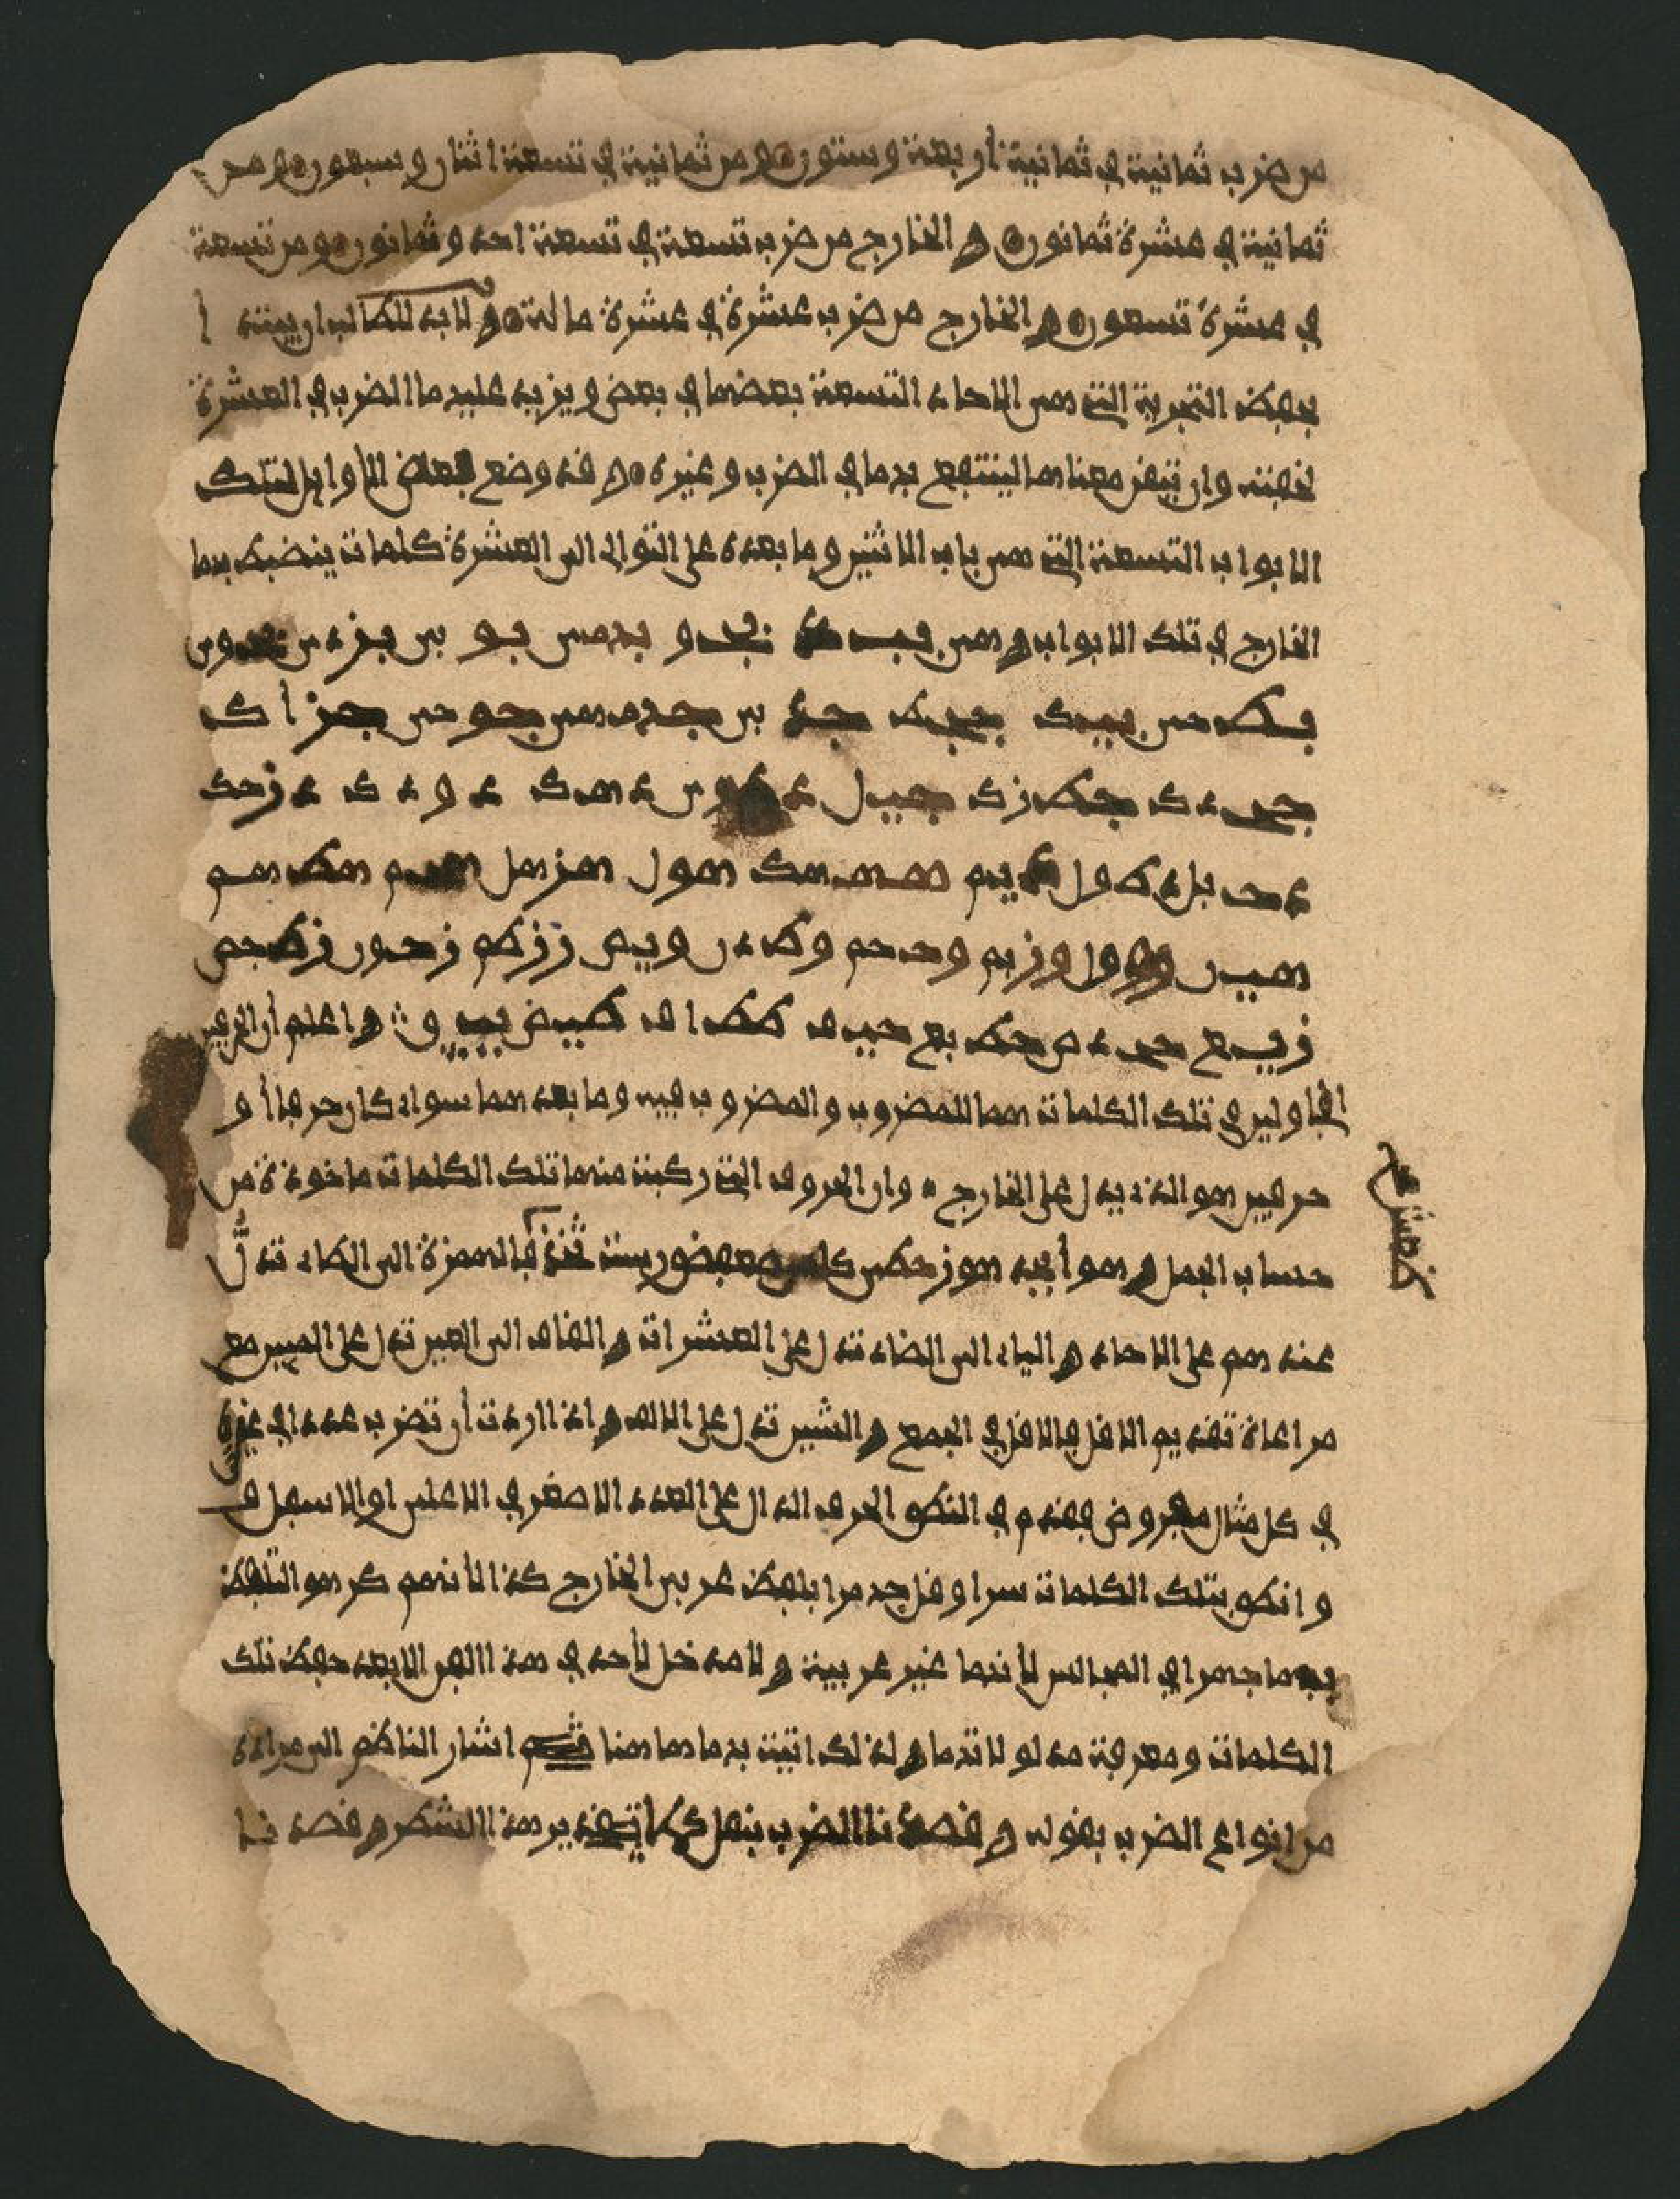 من ضرب ثمانية في ثمانية أربعة وستون ومن ثمانية في تسعة اثنان وسبعون ومن
ثمانية في عشرة ثمانون والخارج من ضرب تسعة في تسعة احد وثمانون ومن تسعة
في عشرة تسعون والخارج من ضرب عشرة في عشرة مائة ولا بد للطالب ان يعتنى
بحفظ التجربة التي هي الاحاد التسعة بعضها في بعض ويزيد عليها الضرب في العشرة
لخفته وان يتقن معناها لينتفع بها في الضرب وغيره وقد وضع بعض الأوايل لتلك
الابواب التسعة التي هي باب الاثنين وما بعده على التوالى الى العشرة كلمات ينضبط بها
الخارج في تلك الابواب وهي ببد بجو بدح بهي بو يب بز دي
بط حي بيك ججط جد بي جه هي جو حي جز أك
جح دك جط زك جيل دد وي ده ك دو دك دز حك
دح بل دط ول ديم ههك هول هز هل هحم هط هم
هين ووول وز بم وح حم وط دن ويس ززطم زحون زط جس
زيع حح دس حط بع حيف طط اف طيض ييق واعلم أن الحرفين
الأولين في تلك الكلمات هما للمضروب والمضروب فيه وما بعدهما سواء كان حرفا أو
حرفين هو الذي يدل على الخارج وان الحروف التي ركبت منها تلك الكلمات ماخوذة من
حساب الجمل وهو أبجد هوز حطي كلمن صعفض قرست ثخذ فالهمزة الى الطاء تدل
عندهم على الاحاد والياء الى الضاد تدل على العشرات والقاف الى الغين تدل على الميين مع
مراعاة تقديم الاقل فالاقل في الجمع والشين تدل على الالف واذا اردت أن تضرب عددا في غيره
في كل مثال مفروض فقدم في النطق الحرف الدال على العدد الاصغر في الاعلى او الاسهل ف
وانطق بتلك الكلمات سرا وقل جهرا بلفظ عربي الخارج كذا لانهم كرهوا التلفظ
بها جهرا في المجالس لأنها غير عربية ولا مدخل لأحد في هذا الفن الا بعد حفظ تلك
الكلمات ومعرفة مدلولاتها ولذلك اتيت بها هاهنا ثم اشار الناظم الى مراده
من انواع الضرب بقوله وقصدنا الضرب بنقل كما تقد ير هذا الشطر وقصد نا